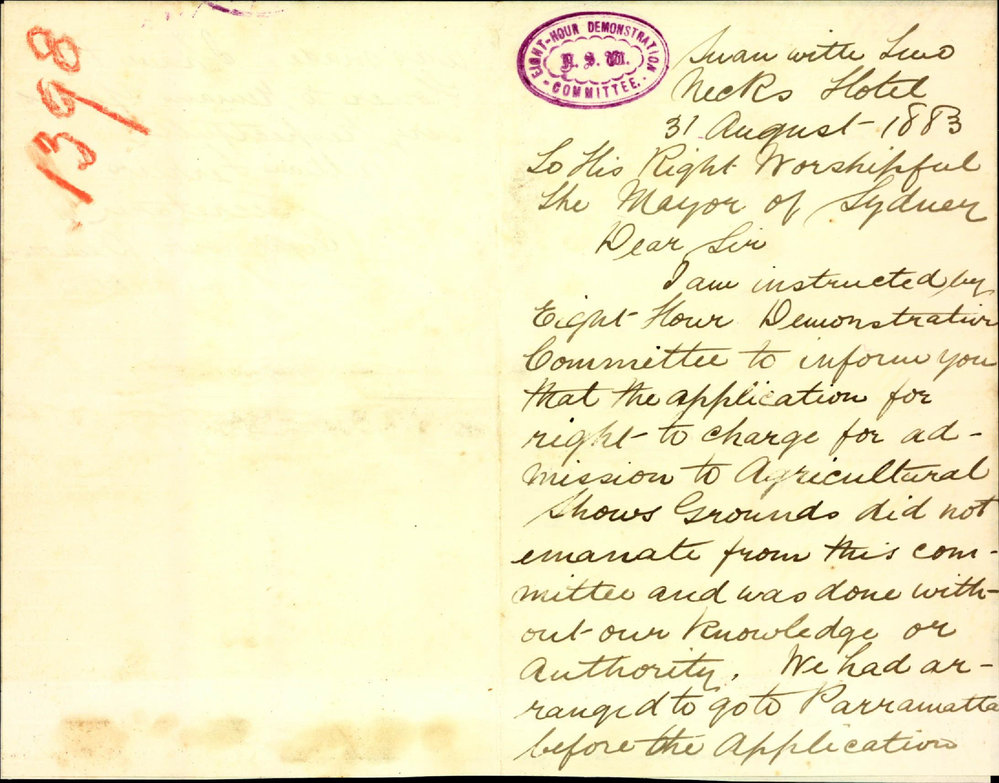 1398
EIGHT-HOUR DEMONSTRATION
N. S. W.
COMMITTEE.
Swan with Two
Necks Hotel
31 August 1883
To His Right Worshipful
the Mayor of Sydney
Dear Sir
I am instructed by
Eight Hour Demonstration
Committee to inform you
that the application for
right to charge for ad-
mission to Agricultural
Shows Grounds did not
emanate from this com-
mittee and was done with-
out our knowledge or
Authority. We had ar-
ranged to go to Parramatta
before the Application